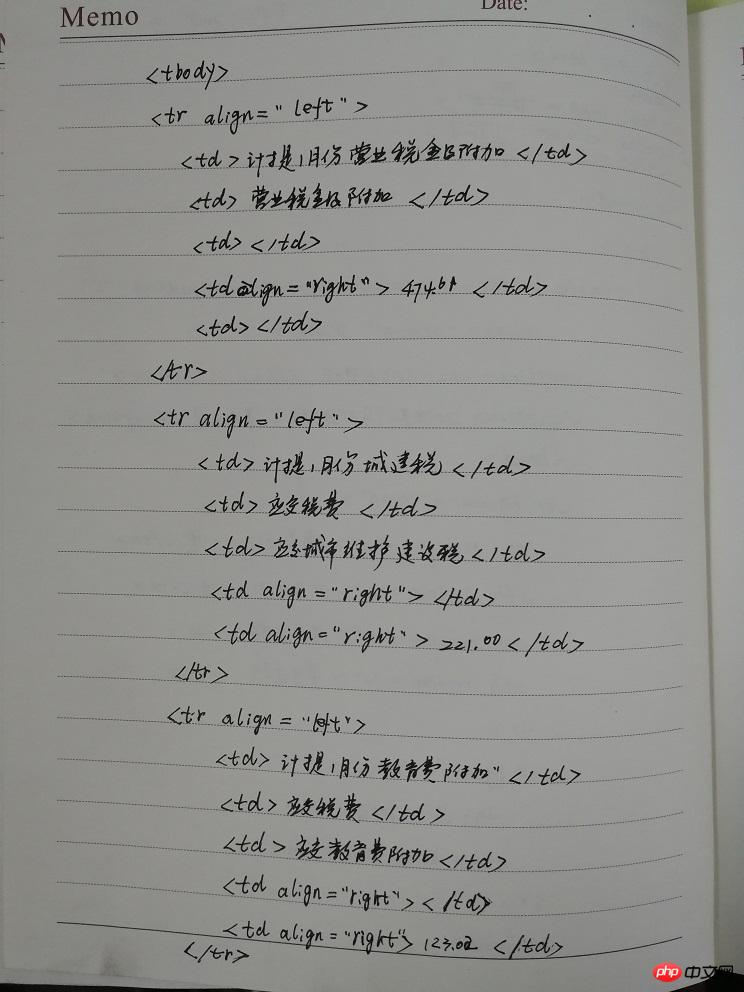 Memo
Date:
<tbody>
<tr align="left">
<td>计提1月份营业税金及附加</td>
<td>营业税金及附加</td>
<td></td>
<td align="right"></td>
<td></td>
</tr>
<tr align="left">
<td>计提1月份城建税</td>
<td>应交税费</td>
<td>应交城市维护建设税</td>
<td align="right"></td>
<td align="right">221.00</td>
</tr>
<tr align="left">
<td>计提1月份教育费附加"</td>
<td>应交税费</td>
<td>应交教育费附加</td>
<td align="right"></td>
<td align="right"></td>
</tr>
php中文网